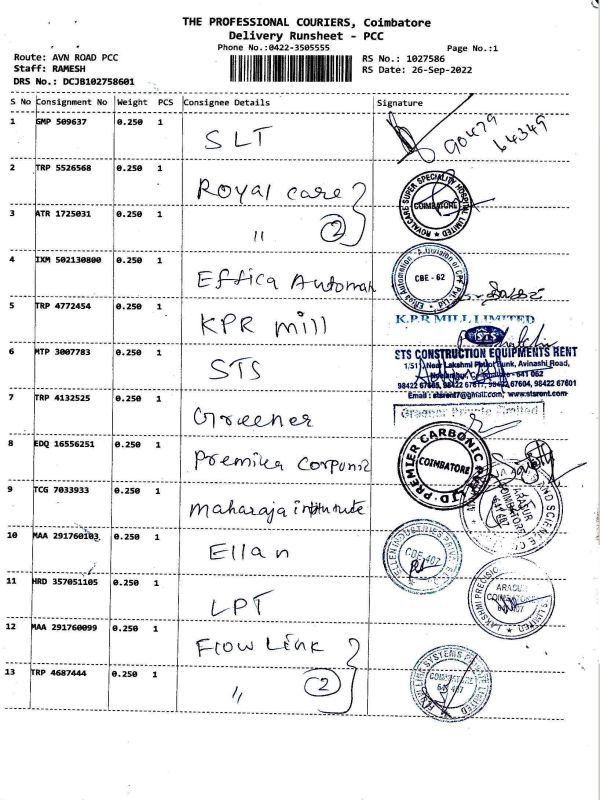 THE PROFESSIONAL COURIERS, Coimbatore
Delivery Runsheet - PCC
Phone No.:0422-3505555
Page No.:1
Route: AVN ROAD PCC
RS No.: 1027586
Staff: RAMESH
RS Date: 26-Sep-2022
DRS No.: DCJB102758601
S No Consignment No Weight PCS Consignee Details Signature
1 GMP 509637 0.250 1 SLT 90479 64349
2 TRP 5526568 0.250 1 Royal care
ROYALCARE SUPER SPECIALITY HOSPITAL LIMITED COIMBATORE
3 ATR 1725031 0.250 1 " (2)
4 IXM 502130800 0.250 1 Effica Automan
Effica Automation - A Division of CPF Pvt. Ltd CBE - 62
5 TRP 4772454 0.250 1 KPR mill
K.P.R MILL LIMITED
6 MTP 3007783 0.250 1 STS
STS
STS CONSTRUCTION EQUIPMENTS RENT
1/51, Near Lakshmi Petrol Bunk, Avinashi Road,
Coimbatore - 641 062
98422 67604, 98422 67601
Email : stsrent7@gmail.com, www.stsrent.com
7 TRP 4132525 0.250 1 Greener
Greener Private Limited
8 EDQ 16556251 0.250 1 Premika
PREMIER CARBONIC PVT LTD COIMBATORE
9 TCG 7033933 0.250 1 Maharaja institute
ARASUR COIMBATORE 641 407
10 MAA 291760103 0.250 1 Ellan
ELLEN INDUSTRIES PRIVATE CBE 407
11 HRD 357051105 0.250 1 LPT
LAKSHMI PRECISION LIMITED ARASUR COIMBATORE 641 407
12 MAA 291760099 0.250 1 Flow Link
FLOWLINK SYSTEMS PRIVATE LIMITED COIMBATORE 641 407
13 TRP 4687444 0.250 1 " (2)